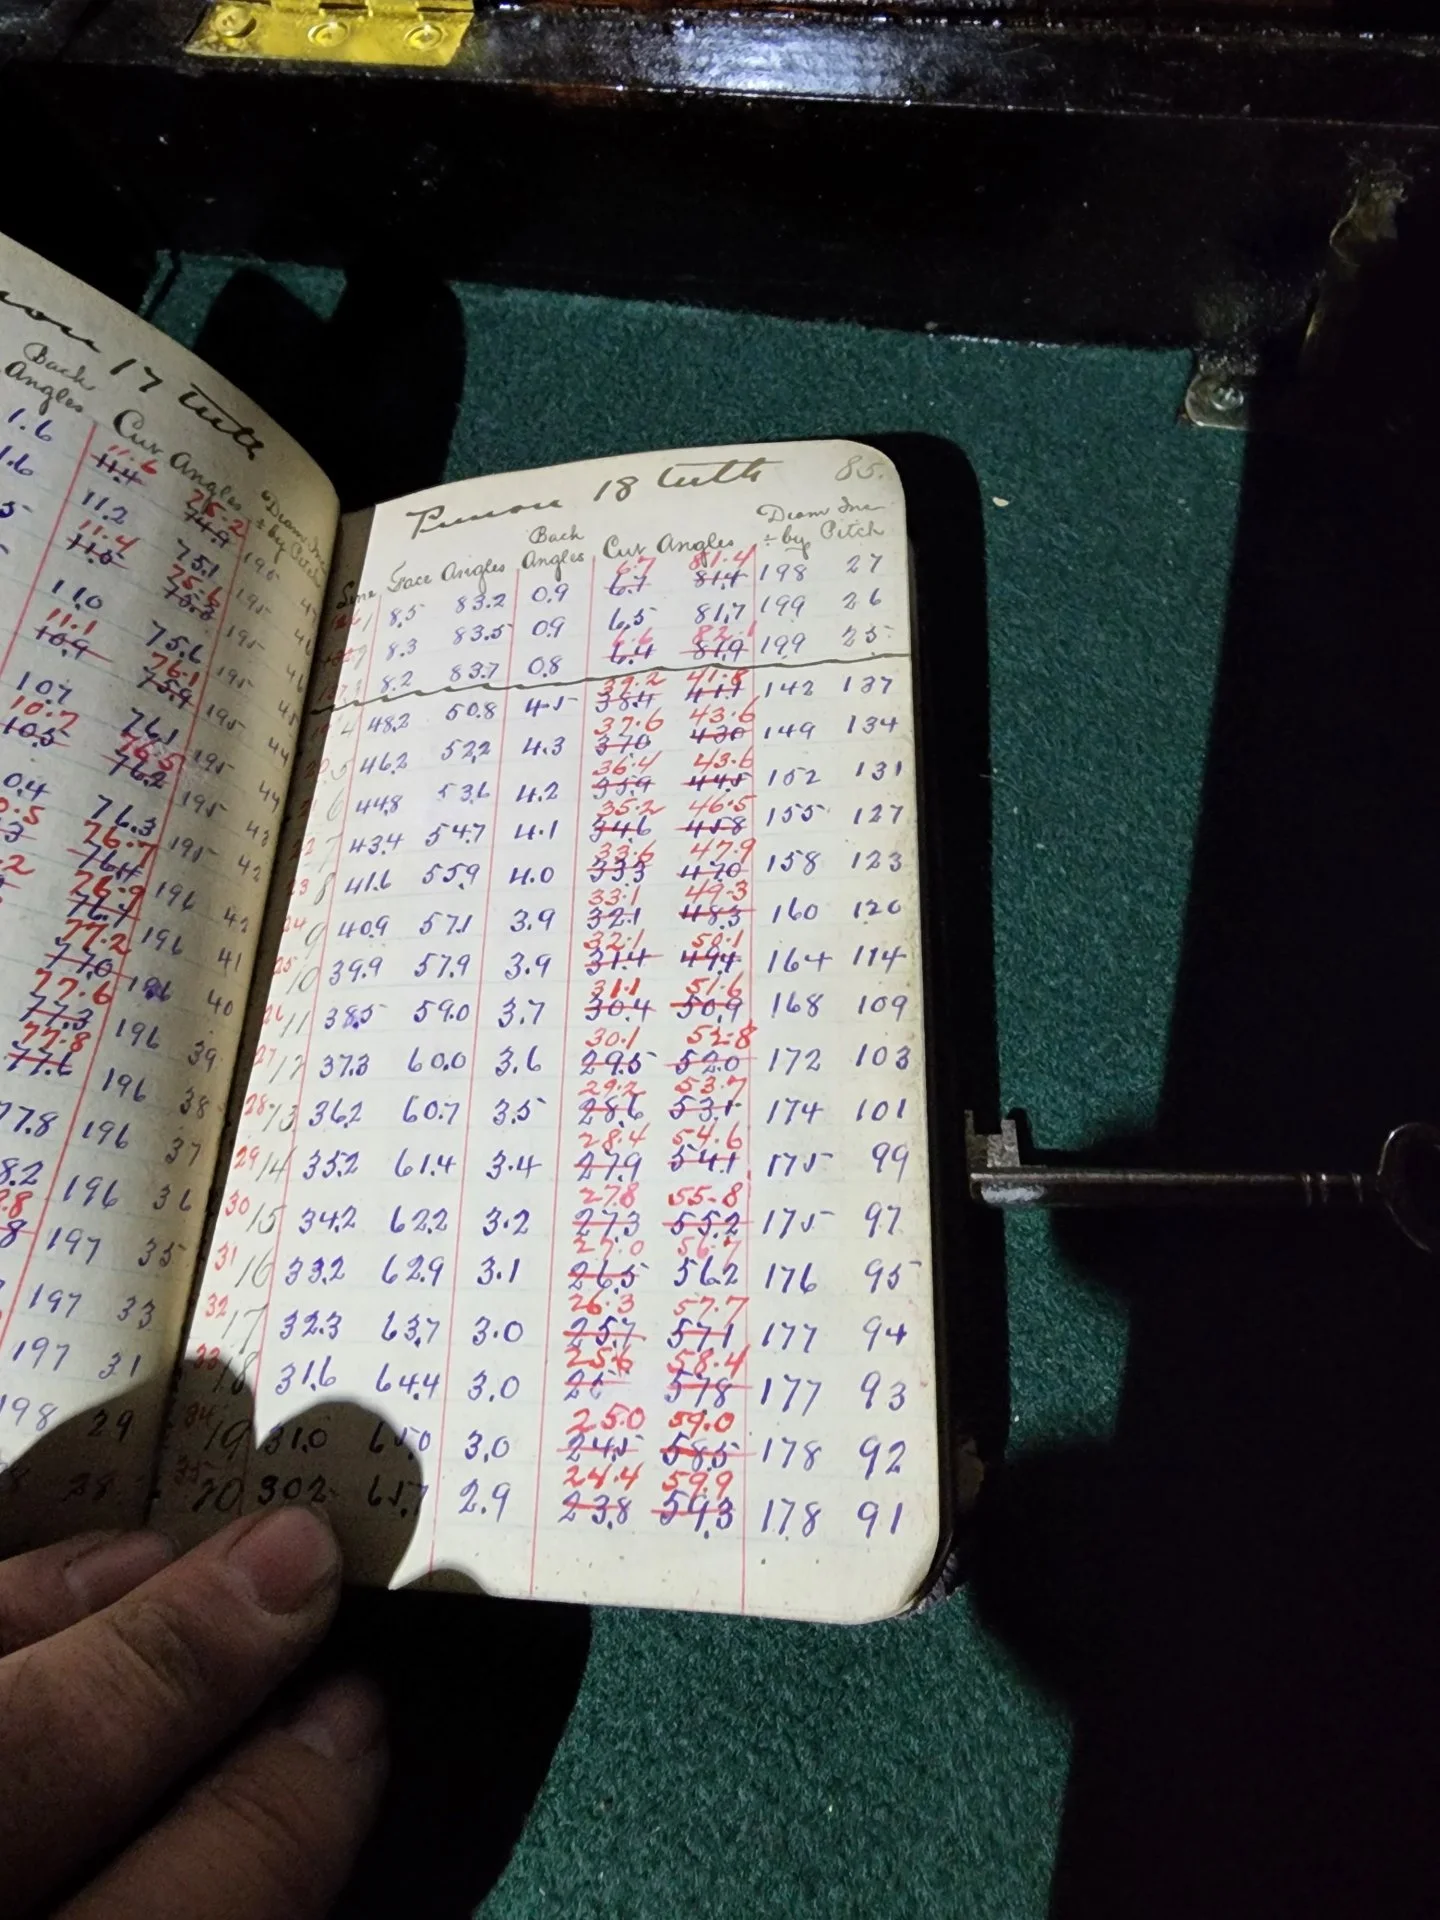 17 teeth
Back
Angles Cut Angles Diam Inc
÷ by Pitch
1.6 11.6
11.4 25.2
1.6 11.2 75.1 195
11.4
11.0 75.6 195
11.0 75.6 195
11.1
10.9 76.1
75.9 195
10.7 76.1 195 44
10.7
10.5 76.5
76.2 195 44
0.4 76.3 195 43
76.7
76.4 195 42
76.9
76.7 196 42
77.2
77.0 196 41
77.6
77.3 196 40
77.8
77.6 196 39
196 38
77.8 196 37
8.2 196 36
197 35
197 33
197 31
198 29
28
Pinion 18 teeth 85.
Face Angles Back
Angles Cut Angles Diam Inc
÷ by Pitch
6.7 81.4
8.5 83.2 0.9 6.7 81.4 198 27
8.3 83.5 0.9 6.5 81.7 199 26
6.6 82.1
8.2 83.7 0.8 6.4 81.9 199 25
39.2 41.8
4 48.2 50.8 4.5 38.4 41.1 142 137
37.6 43.6
5 46.2 52.2 4.3 37.0 43.0 149 134
36.4 43.6
6 44.8 53.6 4.2 35.9 44.5 152 131
35.2 46.5
22 7 43.4 54.7 4.1 34.6 45.8 155 127
33.6 47.9
23 8 41.6 55.9 4.0 33.3 47.0 158 123
33.1 49.3
24 9 40.9 57.1 3.9 32.1 48.3 160 120
32.1 50.1
25 10 39.9 57.9 3.9 31.4 49.4 164 114
31.1 51.6
26 11 38.5 59.0 3.7 30.4 50.9 168 109
30.1 52.8
27 12 37.3 60.0 3.6 29.5 52.0 172 103
29.2 53.7
28 13 36.2 60.7 3.5 28.6 53.1 174 101
28.4 54.6
29 14 35.2 61.4 3.4 27.9 54.1 175 99
27.8 55.8
30 15 34.2 62.2 3.2 27.3 55.2 175 97
27.0 56.7
31 16 33.2 62.9 3.1 26.5 56.2 176 95
26.3 57.7
32 17 32.3 63.7 3.0 25.7 57.1 177 94
25.6 58.4
33 18 31.6 64.4 3.0 57.8 177 93
25.0 59.0
34 19 31.0 65.0 3.0 24.5 58.5 178 92
24.4 59.9
35 20 30.2 65.7 2.9 23.8 59.3 178 91